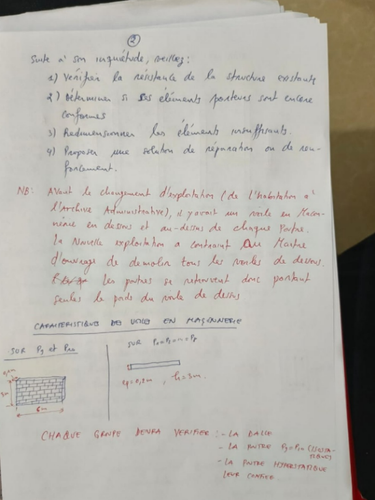 2
Suite à son inquiétude, veillez :
1) Vérifier la résistance de la structure existante
2) Déterminer si ses éléments porteurs sont encore
conformes
3) Redimensionner les éléments insuffisants.
4) Proposer une solution de réparation ou de ren-
forcement.
NB: Avant le changement d'exploitation (de l'habitation à
l'Archive Administrative), il y avait un voile en Maçon-
nerie en dessous et au-dessus de chaque Poutre.
La Nouvelle exploitation a contraint au Maitre
d'ouvrage de demolir tous les voiles de dessous.
les poutres se retrouvent donc portant
seules le poids du voile de dessus
CARACTERISTIQUE DE VOILE EN MACONNERIE
SUR P9 et P10
SUR
3m
6m
ep=0,2m, h=3m.
CHAQUE GROUPE DEVRA VERIFIER : - LA DALLE
- LA POUTRE
- LA POUTRE HYPERSTATIQUE
LEUR CHARGE